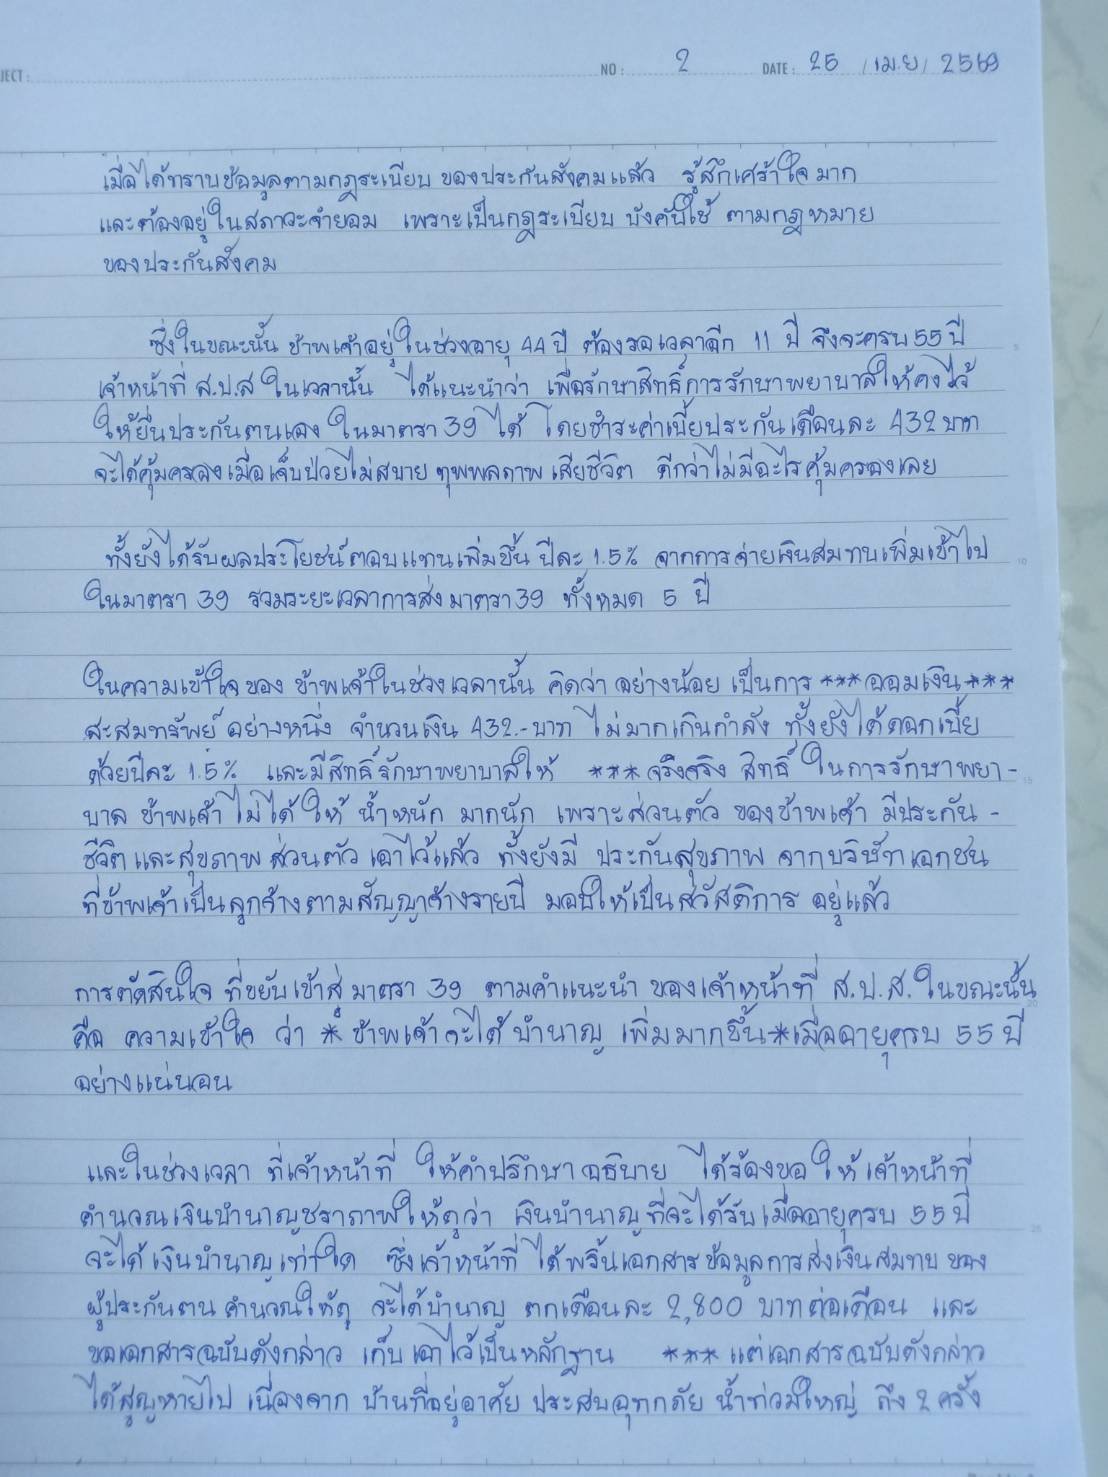 JECT :
NO : 2 DATE : 25 / เม.ย / 2569
เมื่อได้ทราบข้อมูลตามกฎระเบียบ ของประกันสังคมแล้ว รู้สึกเศร้าใจมาก
และต้องอยู่ในสภาวะจำยอม เพราะเป็นกฎระเบียบ บังคับใช้ ตามกฎหมาย
ของประกันสังคม
ซึ่งในขณะนั้น ข้าพเจ้าอยู่ในช่วงอายุ 44 ปี ต้องรอเวลาอีก 11 ปี จึงจะครบ 55 ปี
เจ้าหน้าที่ ส.ป.ส ในเวลานั้น ได้แนะนำว่า เพื่อรักษาสิทธิ์การรักษาพยาบาลให้คงไว้
ให้ยื่นประกันตนเอง ในมาตรา 39 ได้ โดยชำระค่าเบี้ยประกันเดือนละ 432 บาท
จะได้คุ้มครองเมื่อเจ็บป่วยไม่สบาย ทุพพลภาพ เสียชีวิต ดีกว่าไม่มีอะไรคุ้มครองเลย
ทั้งยังได้รับผลประโยชน์ตอบแทนเพิ่มขึ้น ปีละ 1.5% จากการจ่ายเงินสมทบเพิ่มเข้าไป
ในมาตรา 39 รวมระยะเวลาการส่งมาตรา 39 ทั้งหมด 5 ปี
ในความเข้าใจของ ข้าพเจ้าในช่วงเวลานั้น คิดว่า อย่างน้อย เป็นการ ***ออมเงิน***
สะสมทรัพย์ อย่างหนึ่ง จำนวนเงิน 432.- บาท ไม่มากเกินกำลัง ทั้งยังได้ดอกเบี้ย
ด้วยปีละ 1.5% และมีสิทธิ์รักษาพยาบาลให้ *** จริงจริง สิทธิ์ ในการรักษาพยา-
บาล ข้าพเจ้า ไม่ได้ ให้ น้ำหนัก มากนัก เพราะส่วนตัว ของข้าพเจ้า มีประกัน -
ชีวิต และสุขภาพ ส่วนตัว เอาไว้แล้ว ทั้งยังมี ประกันสุขภาพ จากบริษัทเอกชน
ที่ข้าพเจ้าเป็นลูกจ้างตามสัญญาจ้างรายปี มอบให้เป็นสวัสดิการ อยู่แล้ว
การตัดสินใจ ที่ขยับเข้าสู่ มาตรา 39 ตามคำแนะนำ ของเจ้าหน้าที่ ส.ป.ส. ในขณะนั้น
คือ ความเข้าใจ ว่า * ข้าพเจ้าจะได้ บำนาญ เพิ่มมากขึ้น*เมื่ออายุครบ 55 ปี
อย่างแน่นอน
และในช่วงเวลา ที่เจ้าหน้าที่ ให้คำปรึกษา อธิบาย ได้ร้องขอ ให้ เจ้าหน้าที่
คำนวณเงินบำนาญชราภาพให้ดูว่า เงินบำนาญ ที่จะได้รับ เมื่ออายุครบ 55 ปี
จะได้ เงินบำนาญ เท่าใด ซึ่งเจ้าหน้าที่ ได้พริ้นเอกสาร ข้อมูลการส่งเงินสมทบ ของ
ผู้ประกันตน คำนวณให้ดู จะได้บำนาญ ตกเดือนละ 2,800 บาทต่อเดือน และ
ขอเอกสารฉบับดังกล่าว เก็บเอาไว้เป็นหลักฐาน *** แต่เอกสารฉบับดังกล่าว
ได้สูญหายไป เนื่องจาก บ้านที่อยู่อาศัย ประสบอุทกภัย น้ำท่วมใหญ่ ถึง 2 ครั้ง